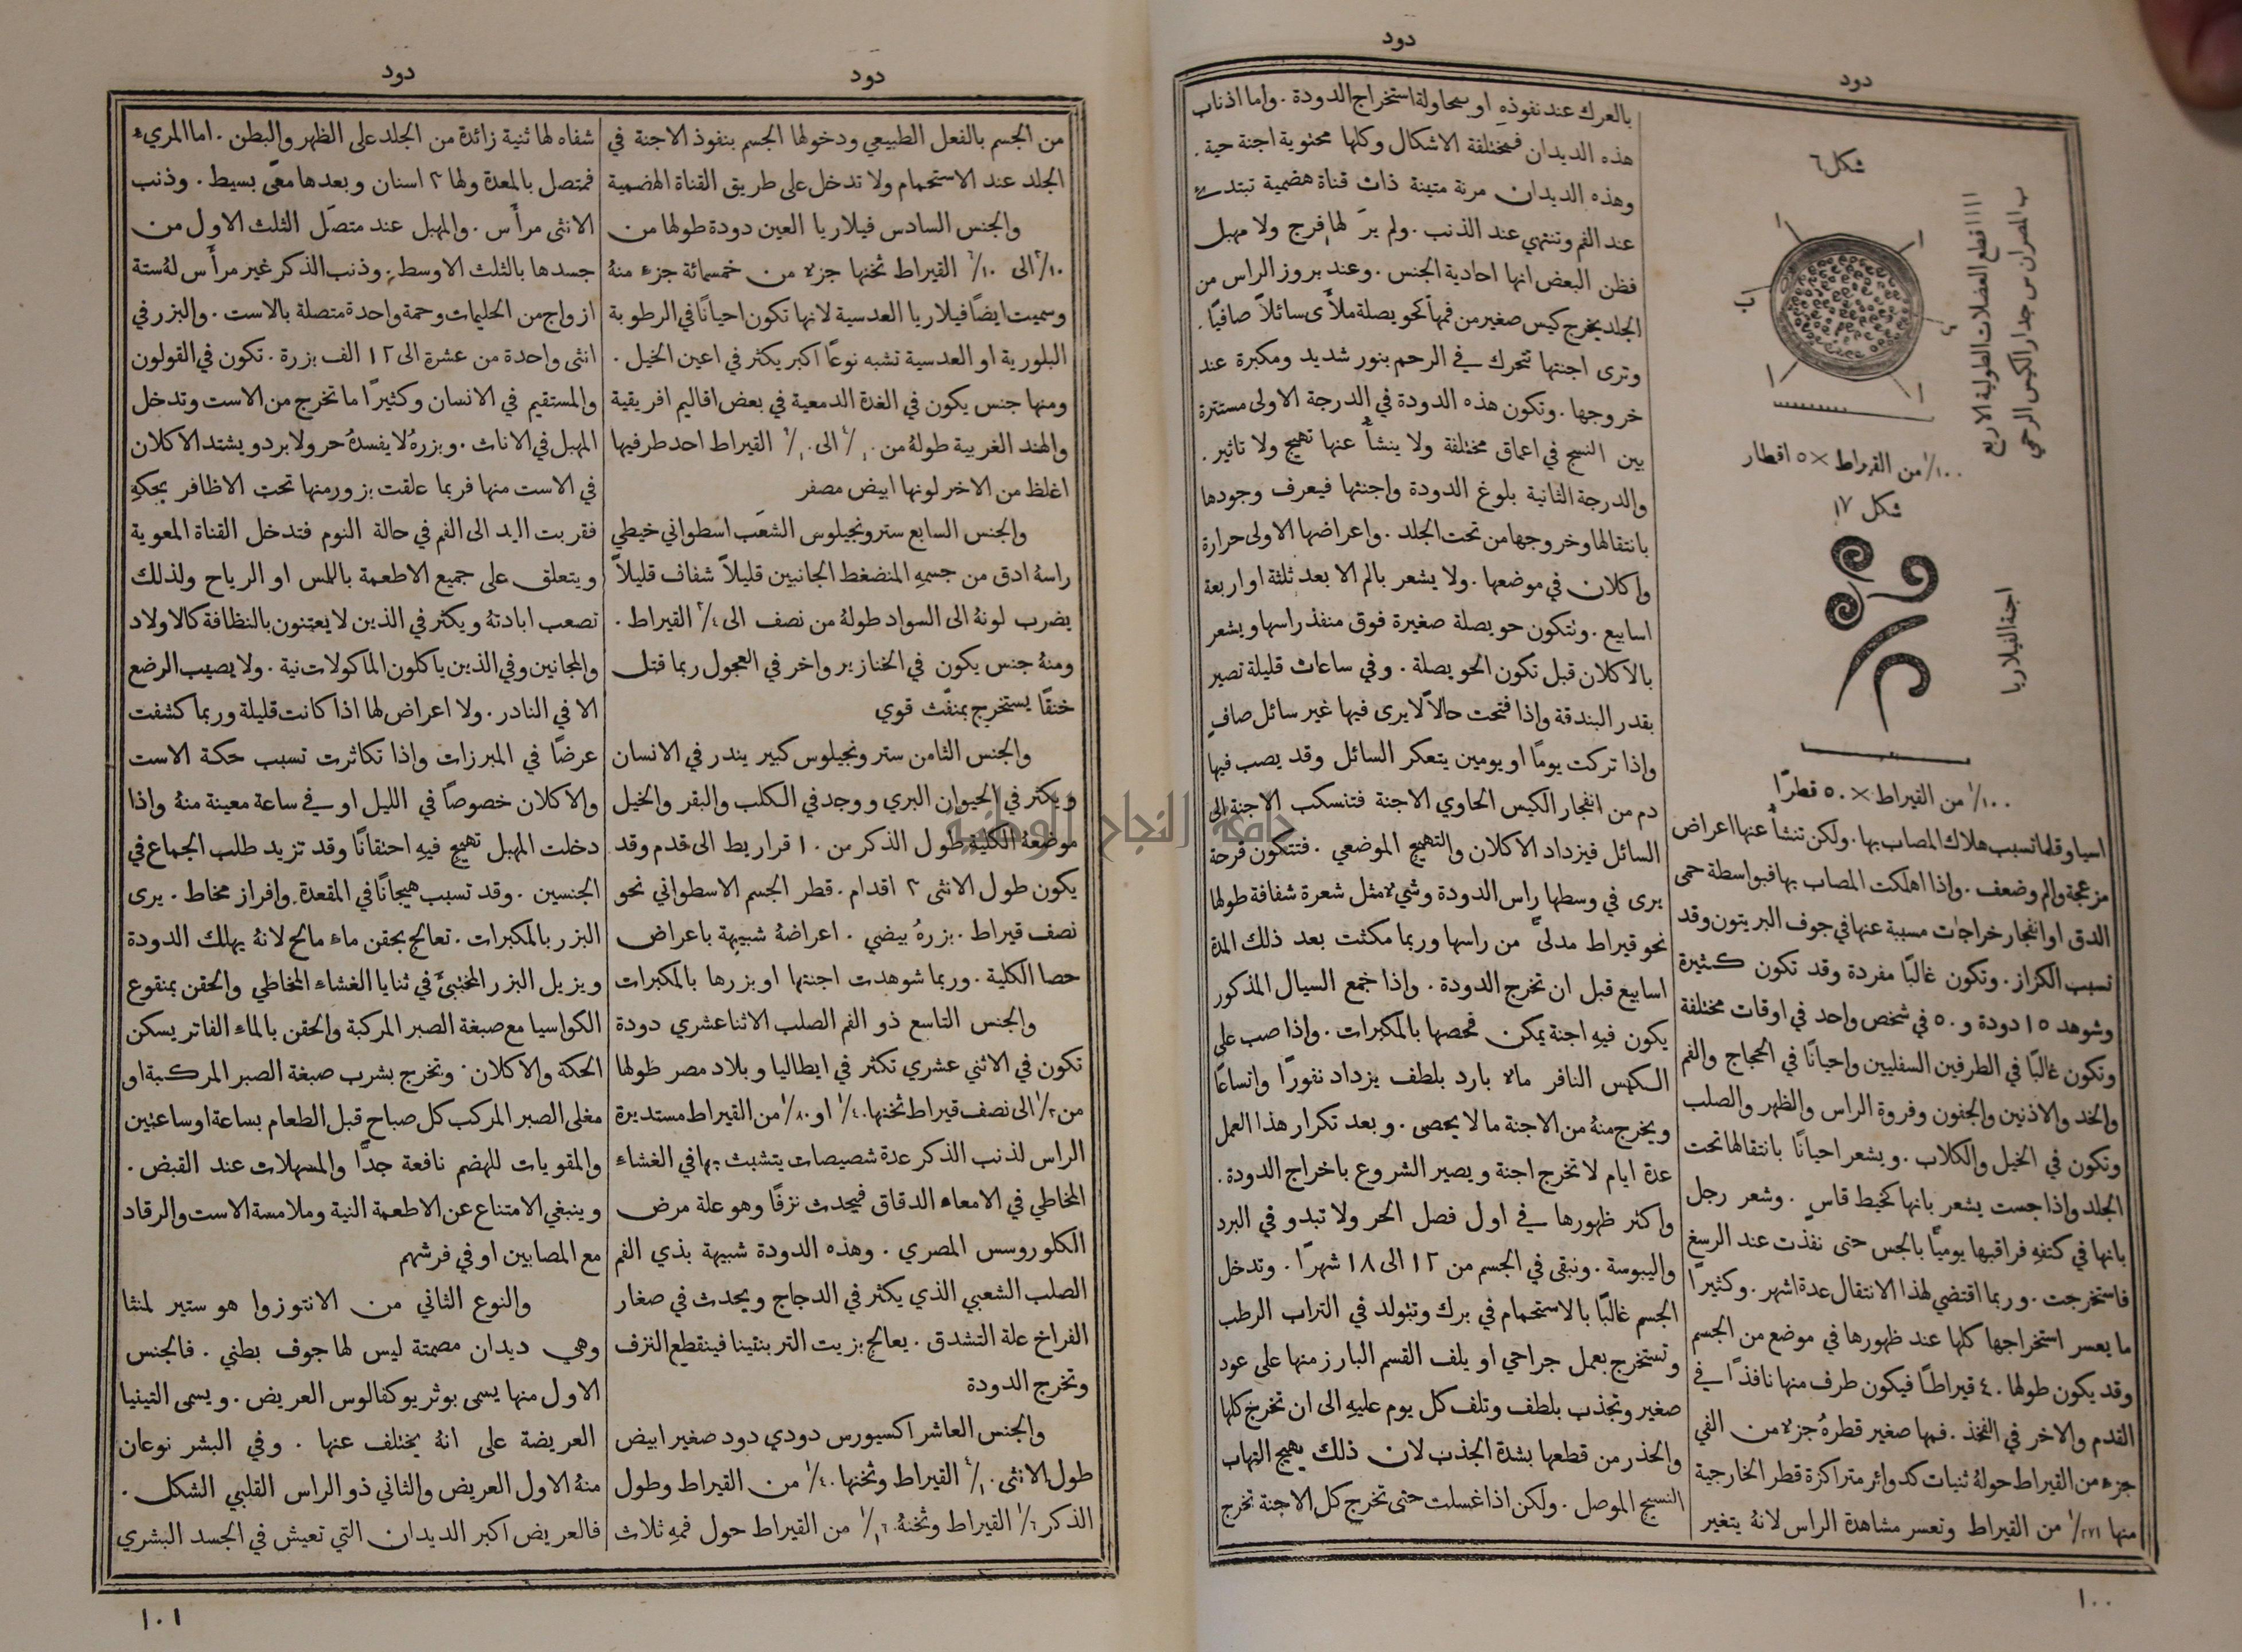 دود
دود
شكل ٦
ا ا ا ا قطع العضلات الطولية الاربع
ب المصران س جدار الكيس الرحمي
ا
ا
ب
س
ا
ا
١/١٠٠ من القيراط × ٥ اقطار
شكل ١٧
اجنة الفيلاريا
١/١٠٠ من القيراط × ٥٠ قطرًا
اسيا وقلما تسبب هلاك المصاب بها. ولكن تنشأ عنها اعراض
مزعجة والم وضعف. واذا اهلكت المصاب بها فبواسطة حمى
الدق او انفجار خراجات مسببة عنها في جوف البريتون وقد
تسبب الكزاز. وتكون غالبًا مفردة وقد تكون كثيرة
وشوهد ١٥ دودة و ٥٠ في شخص واحد في اوقات مختلفة
وتكون غالبًا في الطرفين السفليين واحيانًا في الحجاج والفم
والخد والاذنين والجفون وفروة الراس والظهر والصلب
وتكون في الخيل والكلاب. ويشعر احيانًا بانتقالها تحت
الجلد واذا جست يشعر بانها كخيط قاسٍ. وشعر رجل
بانها في كتفهِ فراقبها يوميًّا بالجس حتى نفذت عند الرسغ
فاستخرجت. وربما اقتضي لهذا الانتقال عدة اشهر. وكثيرًا
ما يعسر استخراجها كلها عند ظهورها في موضع من الجسم
وقد يكون طولها ٤٠ قيراطًا فيكون طرف منها نافذًا في
القدم والاخر في الفخذ. فمها صغير قطرهُ جزء من الفي
جزء من القيراط حولهُ ثنيات كدوائر متراكزة قطر الخارجية
منها ١/٢٧١ من القيراط وتعسر مشاهدة الراس لانهُ يتغير
بالعرك عند نفوذهِ او بمحاولة استخراج الدودة. واما اذناب
هذه الديدان فمختلفة الاشكال وكلها محتوية اجنة حية.
وهذه الديدان مرنة متينة ذات قناة هضمية تبتدئ
عند الفم وتنتهي عند الذنب. ولم يرَ لها فرج ولا مهبل
فظن البعض انها احادية الجنس. وعند بروز الراس من
الجلد يخرج كيس صغير من فمها كحويصلة ملأى سائلاً صافيًا.
وترى اجنتها تتحرك في الرحم بنور شديد ومكبرة عند
خروجها. وتكون هذه الدودة في الدرجة الاولى مستترة
بين النسج في اعماق مختلفة ولا ينشأ عنها تهيج ولا تاثير.
والدرجة الثانية بلوغ الدودة واجنتها فيعرف وجودها
بانتقالها وخروجها من تحت الجلد. واعراضها الاولى حرارة
واكلان في موضعها. ولا يشعر بالم الا بعد ثلثة او اربعة
اسابيع. وتتكون حويصلة صغيرة فوق منفذ راسها ويشعر
بالاكلان قبل تكون الحويصلة. وفي ساعات قليلة تصير
بقدر البندقة واذا فتحت حالاً لا يرى فيها غير سائل صافٍ
واذا تركت يومًا او يومين يتعكر السائل وقد يصب فيها
دم من انفجار الكيس الحاوي الاجنة فتنسكب الاجنة الى
السائل فيزداد الاكلان والتهيج الموضعي. فتتكون قرحة
يرى في وسطها راس الدودة وشيء مثل شعرة شفافة طولها
نحو قيراط مدلىً من راسها وربما مكثت بعد ذلك المدة
اسابيع قبل ان تخرج الدودة. واذا جمع السيال المذكور
يكون فيهِ اجنة يمكن فحصها بالمكبرات. واذا صب على
الكيس النافر ماء بارد بلطف يزداد نفورًا واتساعًا
ويخرج منهُ من الاجنة ما لا يحصى. وبعد تكرار هذا العمل
عدة ايام لا تخرج اجنة ويصير الشروع باخراج الدودة.
واكثر ظهورها في اول فصل الحر ولا تبدو في البرد
واليبوسة. وتبقى في الجسم من ١٢ الى ١٨ شهرًا. وتدخل
الجسم غالبًا بالاستحمام في برك وتتولد في التراب الرطب
وتستخرج بعمل جراحي او يلف القسم البارز منها على عود
صغير وتجذب بلطف وتلف كل يوم عليهِ الى ان تخرج كلها
والحذر من قطعها بشدة الجذب لان ذلك يهيج التهاب
النسيج الموصل. ولكن اذا غسلت حتى تخرج كل الاجنة تخرج
١٠٠
دود
دود
من الجسم بالفعل الطبيعي ودخولها الجسم بنفوذ الاجنة في
الجلد عند الاستحمام ولا تدخل على طريق القناة الهضمية
والجنس السادس فيلاريا العين دودة طولها من
الى القيراط ثخنها جزء من خمسمائة جزء منهُ
وسميت ايضًا فيلاريا العدسية لانها تكون احيانًا في الرطوبة
البلورية او العدسية تشبه نوعًا اكبر يكثر في اعين الخيل.
ومنها جنس يكون في الغدة الدمعية في بعض اقاليم افريقية
والهند الغربية طولهُ من الى القيراط احد طرفيها
اغلظ من الاخر لونها ابيض مصفر
والجنس السابع سترونجيلوس الشعَب اسطواني خيطي
راسهُ ادق من جسمهِ المنضغط الجانبين قليلاً شفاف قليلاً
يضرب لونهُ الى السواد طولهُ من نصف الى ٣/٤ القيراط.
ومنهُ جنس يكون في الخنازير واخر في العجول ربما قتل
خنقًا يستخرج بمنفّث قوي
والجنس الثامن سترونجيلوس كبير يندر في الانسان
ويكثر في الحيوان البري ووجد في الكلب والبقر والخيل
موضعهُ الكلية طول الذكر من ١٠ قراريط الى قدم وقد
يكون طول الانثى ٣ اقدام. قطر الجسم الاسطواني نحو
نصف قيراط. بزرهُ بيضي. اعراضهُ شبيهة باعراض
حصا الكلية. وربما شوهدت اجنتها او بزرها بالمكبرات
والجنس التاسع ذو الفم الصلب الاثنا عشري دودة
تكون في الاثني عشري تكثر في ايطاليا وبلاد مصر طولها
من ١/٣ الى نصف قيراط ثخنها ١/٤٠ او ١/٨٠ من القيراط مستديرة
الراس لذنب الذكر عدة شصيصات يتشبث بها في الغشاء
المخاطي في الامعاء الدقاق فيحدث نزفًا وهو علة مرض
الكلوروسس المصري. وهذه الدودة شبيهة بذي الفم
الصلب الشعبي الذي يكثر في الدجاج ويحدث في صغار
الفراخ علة التشدق. يعالج بزيت التربنتينا فينقطع النزف
وتخرج الدودة
والجنس العاشر اكسيورس دودي دود صغير ابيض
طول الانثى القيراط وثخنها ١/٤٠ من القيراط وطول
الذكر ١/٦ القيراط وثخنهُ من القيراط حول فمهِ ثلاث
شفاه لها ثنية زائدة من الجلد على الظهر والبطن. اما المريء
فمتصل بالمعدة ولها ٣ اسنان وبعدها معًى بسيط. وذنب
الانثى مرأس. والمهبل عند متصَل الثلث الاول من
جسدها بالثلث الاوسط. وذنب الذكر غير مرأس لهُ ستة
ازواج من الحليمات وحمة واحدة متصلة بالاست. والبزر في
انثى واحدة من عشرة الى ١٢ الف بزرة. تكون في القولون
والمستقيم في الانسان وكثيرًا ما تخرج من الاست وتدخل
المهبل في الاناث. وبزرهُ لا يفسدهُ حر ولا برد ويشتد الاكلان
في الاست منها فربما علقت بزور منها تحت الاظافر بحكهِ
فقربت اليد الى الفم في حالة النوم فتدخل القناة المعوية
ويتعلق على جميع الاطعمة باللمس او الرياح ولذلك
تصعب ابادتهُ ويكثر في الذين لا يعتنون بالنظافة كالاولاد
والمجانين وفي الذين ياكلون الماكولات نية. ولا يصيب الرضع
الا في النادر. ولا اعراض لها اذا كانت قليلة وربما كشفت
عرضًا في المبرزات واذا تكاثرت تسبب حكة الاست
والاكلان خصوصًا في الليل او في ساعة معينة منهُ واذا
دخلت المهبل تهيج فيهِ احتقانًا وقد تزيد طلب الجماع في
الجنسين. وقد تسبب هيجانًا في المقعدة وافراز مخاط. يرى
البزر بالمكبرات. تعالج بحقن ماء مالح لانهُ يهلك الدودة
ويزيل البزر المختبئ في ثنايا الغشاء المخاطي والحقن بمنقوع
الكواسيا مع صبغة الصبر المركبة والحقن بالماء الفاتر يسكن
الحكة والاكلان. وتخرج بشرب صبغة الصبر المركبة او
مغلى الصبر المركب كل صباح قبل الطعام بساعة او ساعتين
والمقويات للهضم نافعة جدًّا والمسهلات عند القبض.
وينبغي الامتناع عن الاطعمة النية وملامسة الاست والرقاد
مع المصابين او في فرشهم
والنوع الثاني من الانتوزوا هو ستير لمنثا
وهي ديدان مصمتة ليس لها جوف بطني. فالجنس
الاول منها يسمى بوثريوكفالوس العريض. ويسمى التينيا
العريضة على انهُ يختلف عنها. وفي البشر نوعان
منهُ الاول العريض والثاني ذو الراس القلبي الشكل.
فالعريض اكبر الديدان التي تعيش في الجسد البشري
١٠١
جامعة النجاح الوطنية